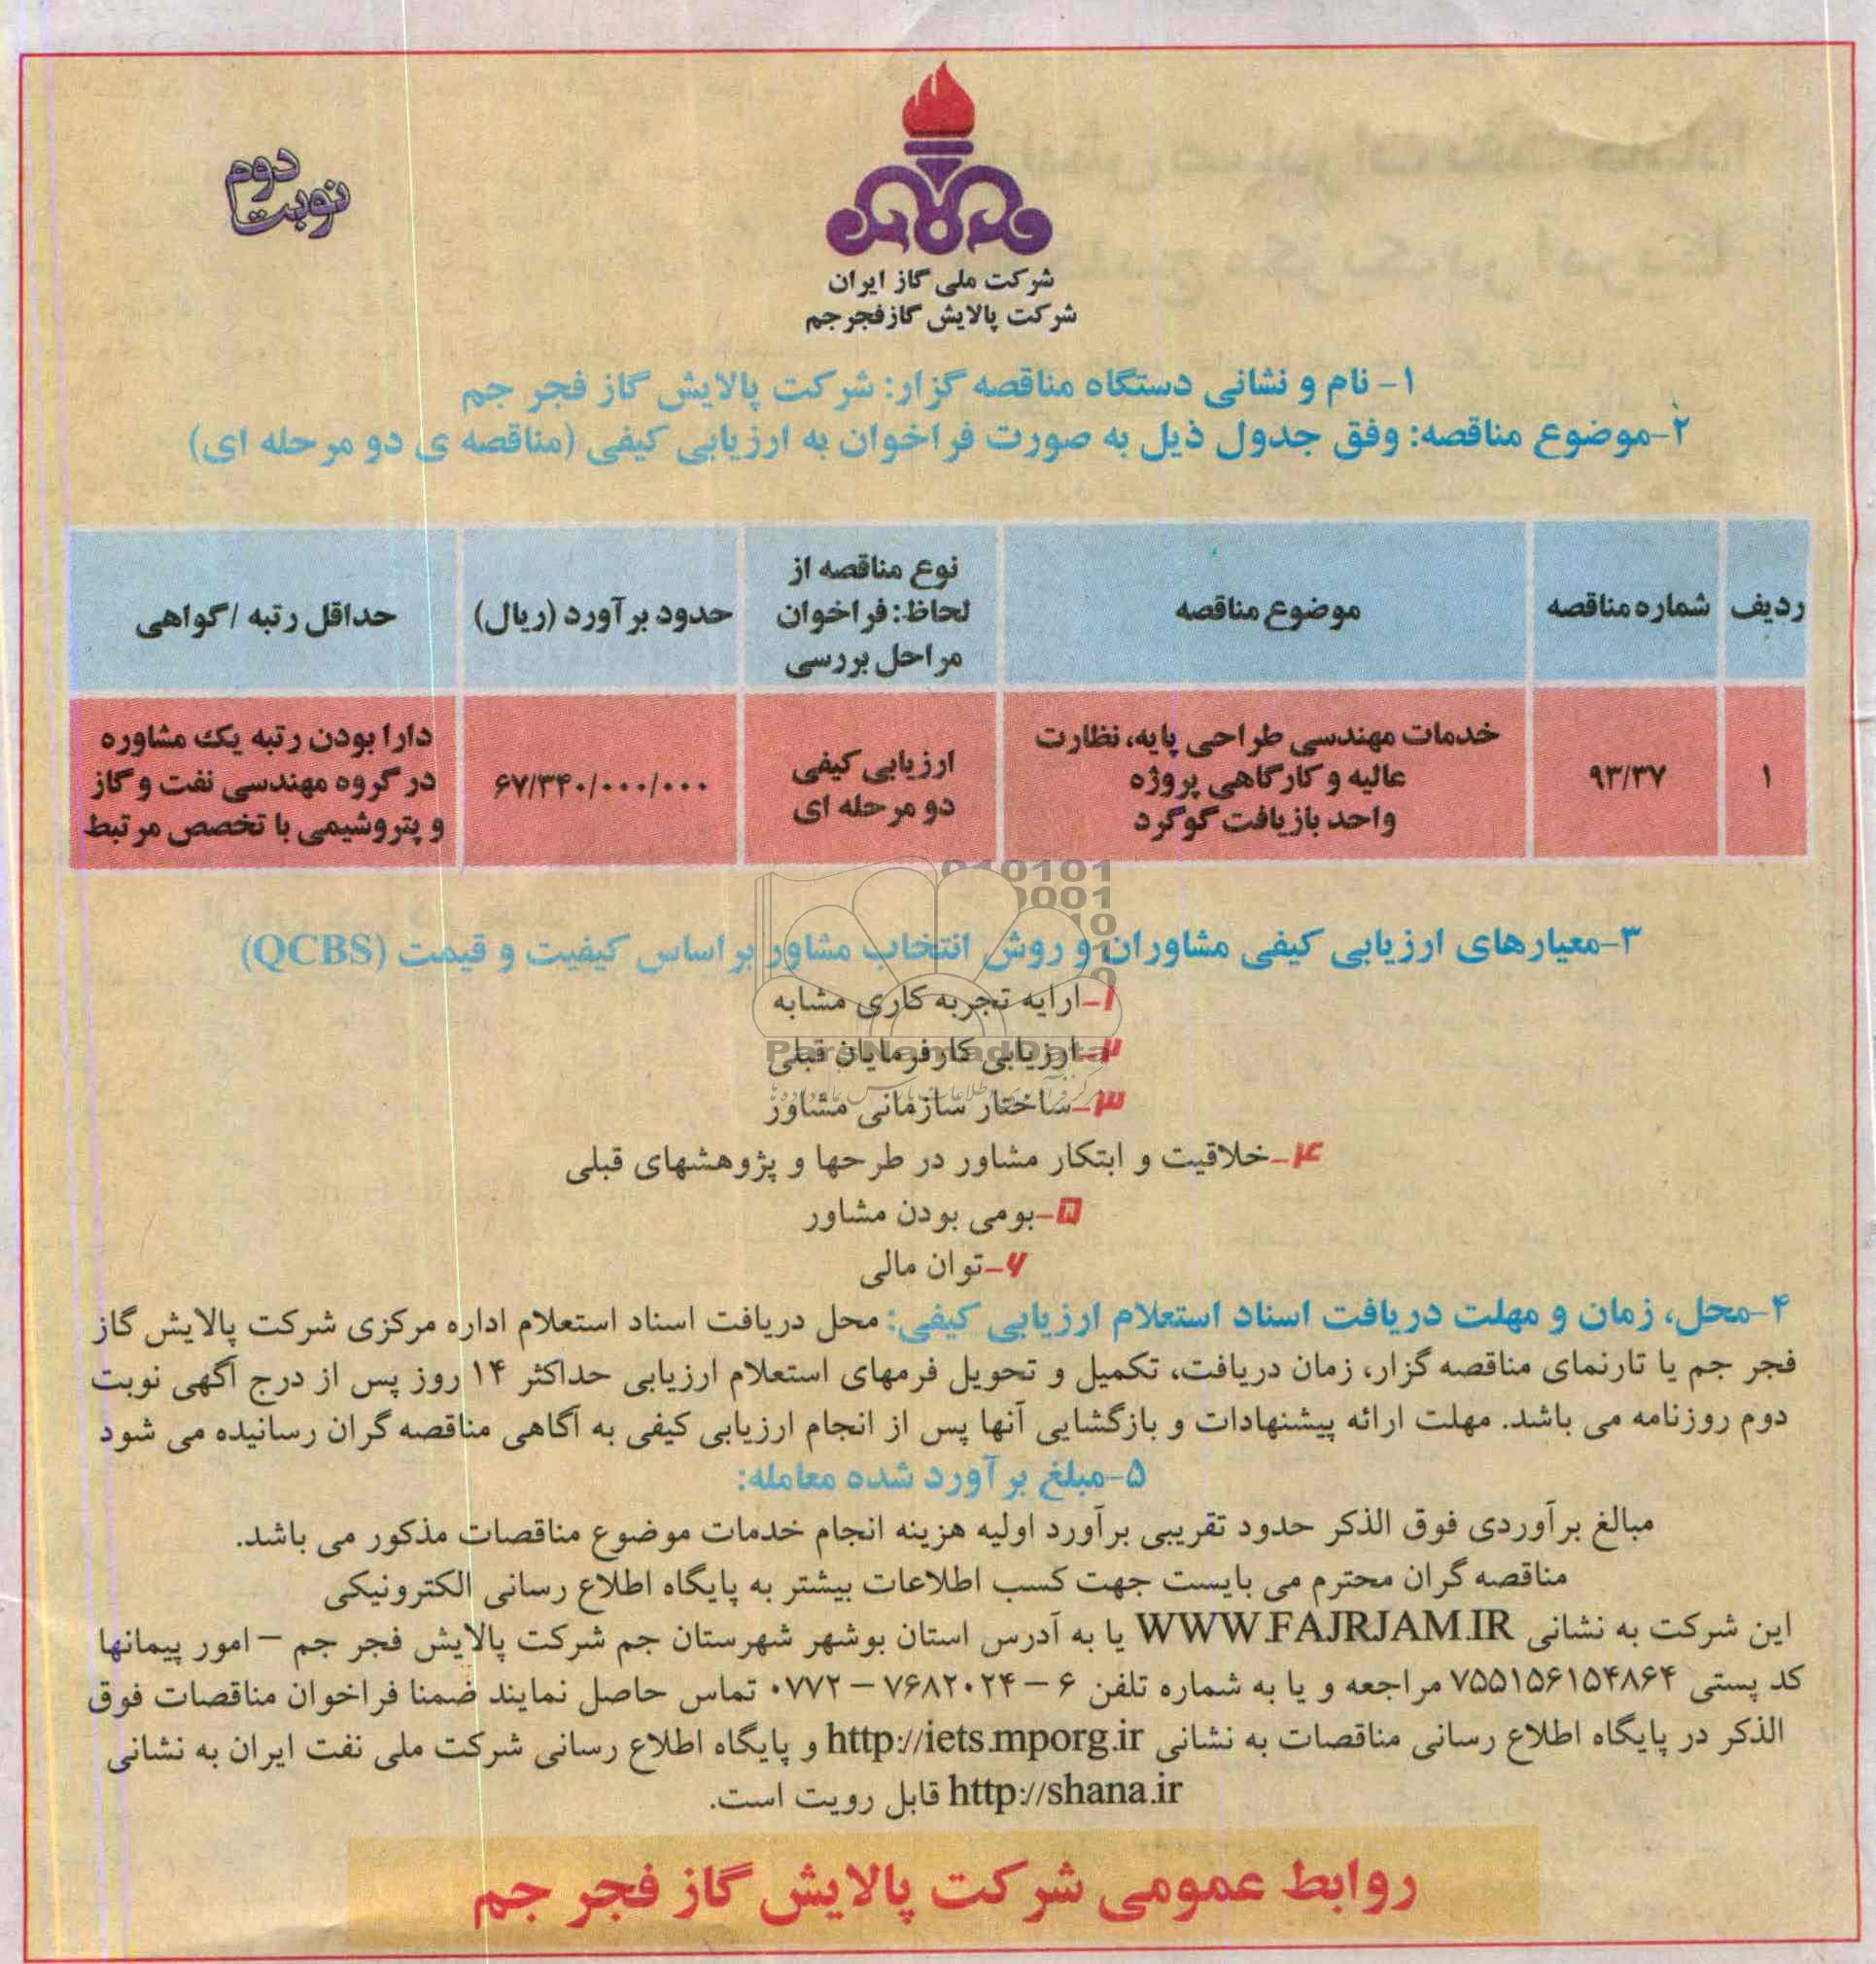 نوبت دوم
شرکت ملی گاز ایران
شرکت پالایش گازفجرجم
۱- نام و نشانی دستگاه مناقصه گزار: شرکت پالایش گاز فجر جم
۲-موضوع مناقصه: وفق جدول ذیل به صورت فراخوان به ارزیابی کیفی (مناقصه ی دو مرحله ای)
ردیف
شماره مناقصه
موضوع مناقصه
نوع مناقصه از
لحاظ: فراخوان
مراحل بررسی
حدود برآورد (ریال)
حداقل رتبه /گواهی
۱
۹۳/۳۷
خدمات مهندسی طراحی پایه، نظارت
عالیه و کارگاهی پروژه
واحد بازیافت گوگرد
ارزیابی کیفی
دو مرحله ای
۶۷/۳۴۰/۰۰۰/۰۰۰
دارا بودن رتبه یک مشاوره
در گروه مهندسی نفت و گاز
و پتروشیمی با تخصص مرتبط
۳-معیارهای ارزیابی کیفی مشاوران و روش انتخاب مشاور براساس کیفیت و قیمت (QCBS)
۱-ارایه تجربه کاری مشابه
۲-ارزیابی کارفرمایان قبلی
۳-ساختار سازمانی مشاور
۴-خلاقیت و ابتکار مشاور در طرحها و پژوهشهای قبلی
۵-بومی بودن مشاور
۶-توان مالی
۴-محل، زمان و مهلت دریافت اسناد استعلام ارزیابی کیفی: محل دریافت اسناد استعلام اداره مرکزی شرکت پالایش گاز
فجر جم یا تارنمای مناقصه گزار، زمان دریافت، تکمیل و تحویل فرمهای استعلام ارزیابی حداکثر ۱۴ روز پس از درج آگهی نوبت
دوم روزنامه می باشد. مهلت ارائه پیشنهادات و بازگشایی آنها پس از انجام ارزیابی کیفی به آگاهی مناقصه گران رسانیده می شود
۵-مبلغ برآورد شده معامله:
مبالغ برآوردی فوق الذکر حدود تقریبی برآورد اولیه هزینه انجام خدمات موضوع مناقصات مذکور می باشد.
مناقصه گران محترم می بایست جهت کسب اطلاعات بیشتر به پایگاه اطلاع رسانی الکترونیکی
این شرکت به نشانی WWW.FAJRJAM.IR یا به آدرس استان بوشهر شهرستان جم شرکت پالایش فجر جم – امور پیمانها
کد پستی ۷۵۵۱۵۶۱۵۴۸۶۴ مراجعه و یا به شماره تلفن ۶ – ۷۶۸۲۰۲۴ – ۰۷۷۲ تماس حاصل نمایند ضمنا فراخوان مناقصات فوق
الذکر در پایگاه اطلاع رسانی مناقصات به نشانی http://iets.mporg.ir و پایگاه اطلاع رسانی شرکت ملی نفت ایران به نشانی
http://shana.ir قابل رویت است.
روابط عمومی شرکت پالایش گاز فجر جم
ParsNamadData